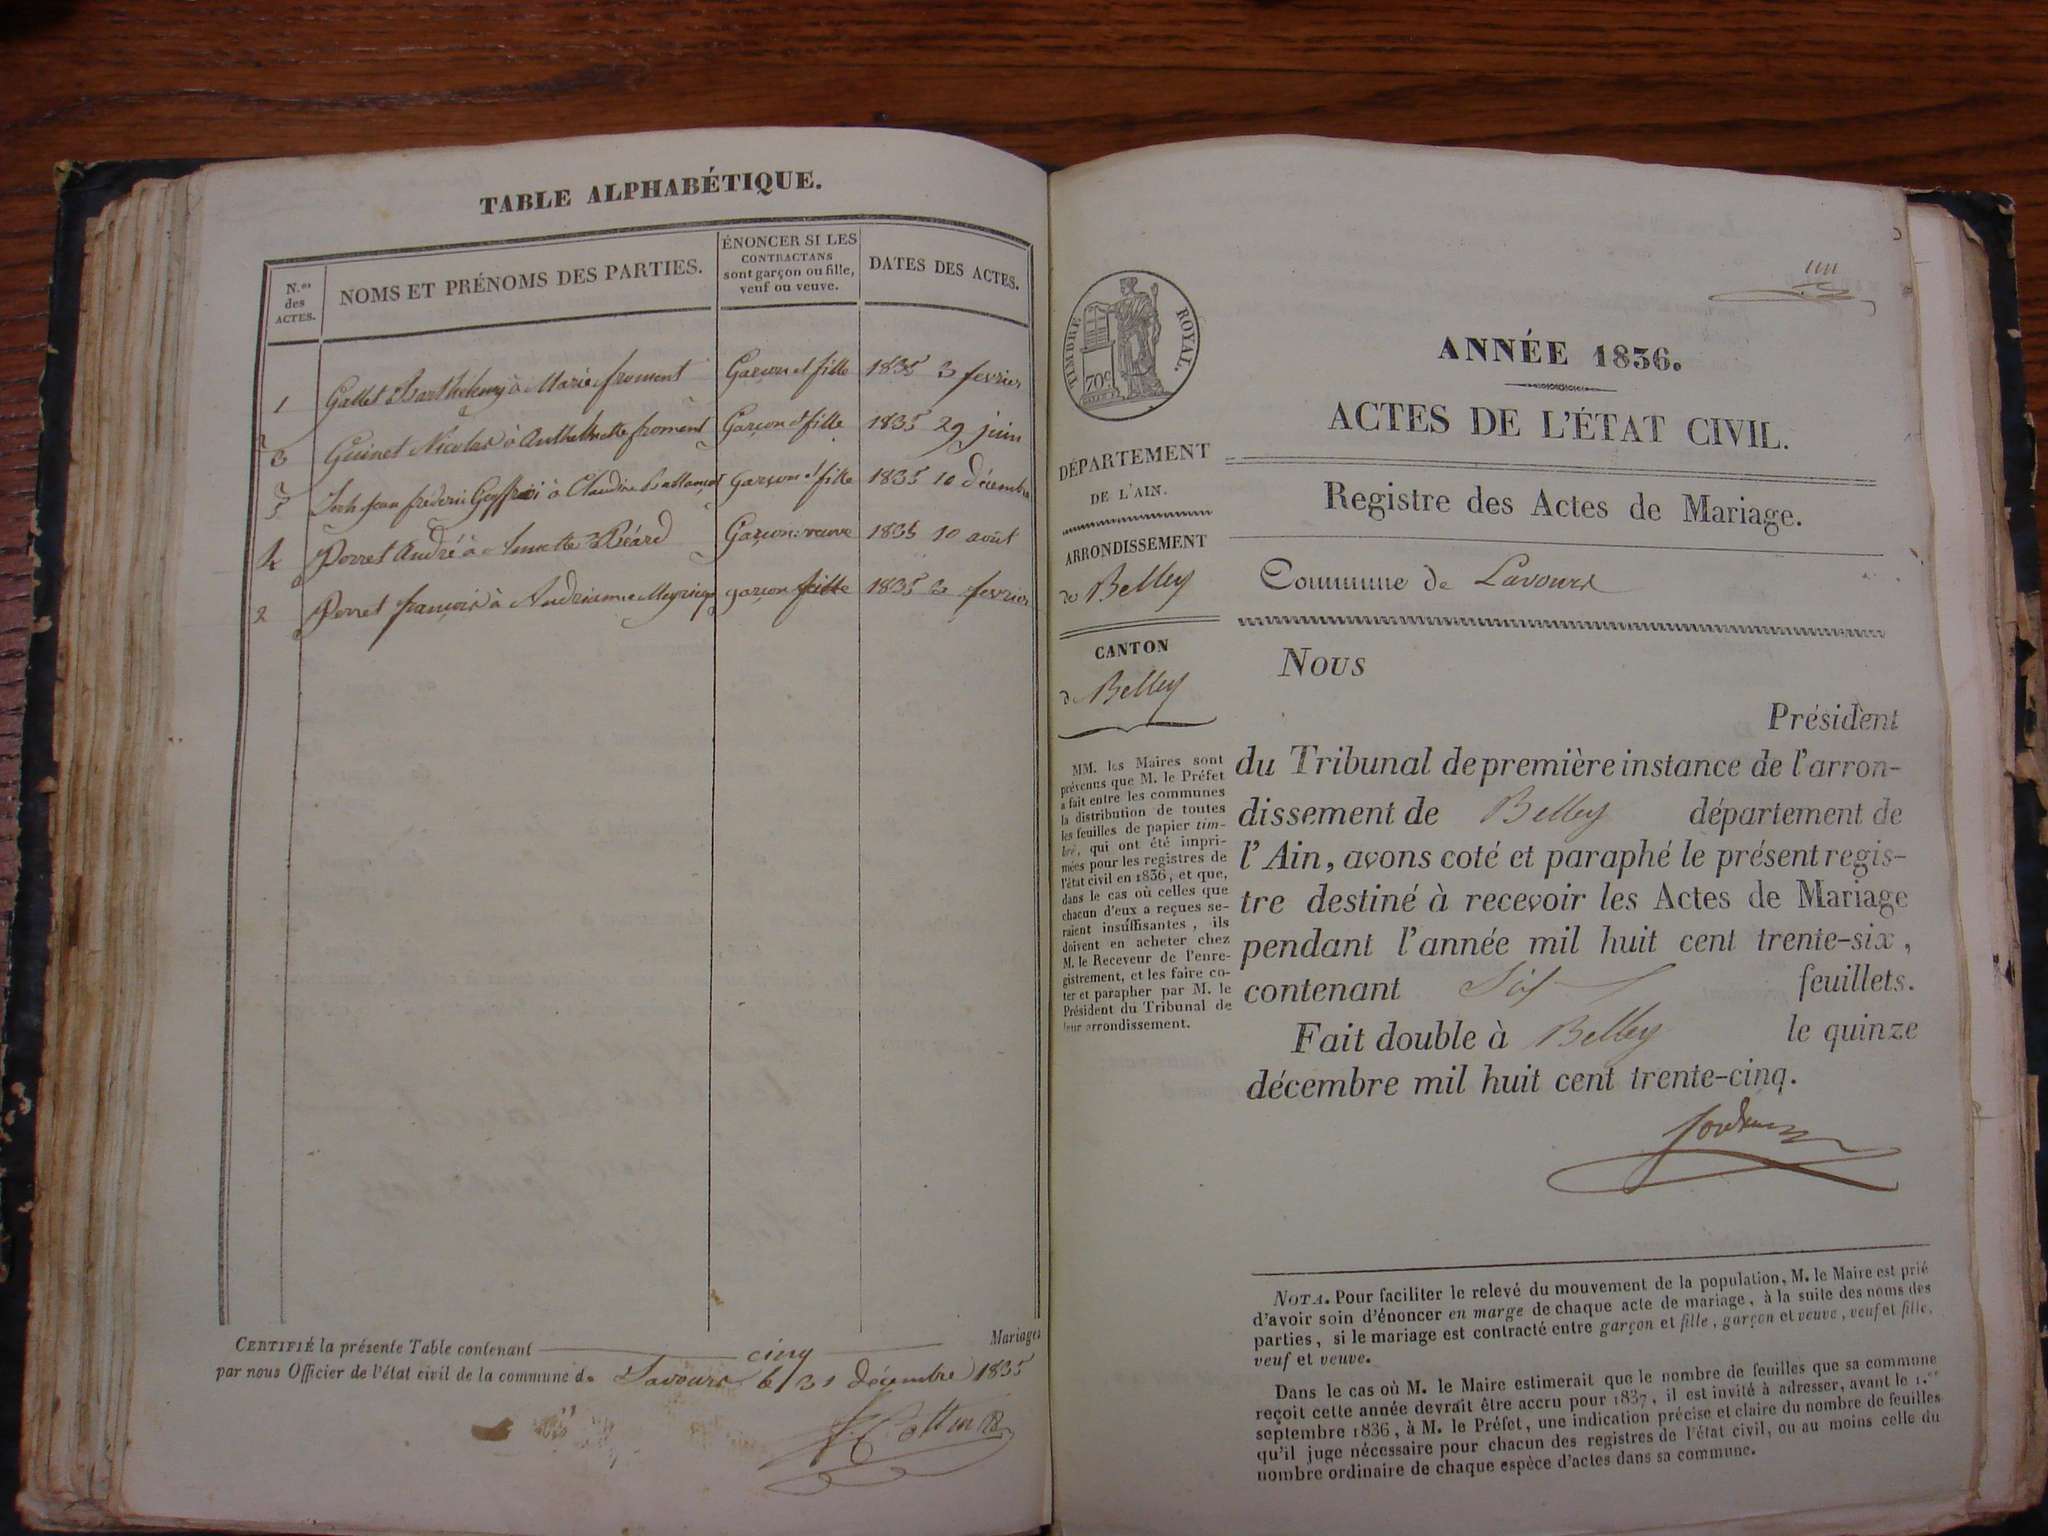 TABLE ALPHABÉTIQUE.
N.os des ACTES.
NOMS ET PRÉNOMS DES PARTIES.
ÉNONCER SI LES CONTRACTANS sont garçon ou fille, veuf ou veuve.
DATES DES ACTES.
1 Gallet Barthelemy à Marie froment Garçon et fille 1835 3 fevrier
3 Guinet Nicolas à Anthelmette froment Garçon et fille 1835 29 juin
5 Jean frederic Geoffrai à Claudine Garçon et fille 1835 10 décembre
4 Perret André à Annette Béard Garçon veuve 1835 10 août
2 Perret françois à Andrienne garçon fille 1835 3 fevrier
CERTIFIÉ la présente Table contenant cinq Mariages
par nous Officier de l'état civil de la commune de Lavours le 31 décembre 1835
TIMBRE ROYAL.
70c
ANNÉE 1836.
ACTES DE L'ÉTAT CIVIL.
Registre des Actes de Mariage.
Commune de Lavours
DÉPARTEMENT
DE L'AIN.
ARRONDISSEMENT
de Belley
CANTON
de Belley
MM. les Maires sont
prévenus que M. le Préfet
a fait entre les communes
la distribution de toutes
les feuilles de papier tim-
bré, qui ont été impri-
mées pour les registres de
l'état civil en 1836, et que,
dans le cas où celles que
chacun d'eux a reçues se-
raient insuffisantes, ils
doivent en acheter chez
M. le Receveur de l'enre-
gistrement, et les faire co-
ter et parapher par M. le
Président du Tribunal de
leur arrondissement.
NOUS
Président
du Tribunal de première instance de l'arron-
dissement de Belley département de
l'Ain, avons coté et paraphé le présent regis-
tre destiné à recevoir les Actes de Mariage
pendant l'année mil huit cent trente-six,
contenant Six feuillets.
Fait double à Belley le quinze
décembre mil huit cent trente-cinq.
NOTA. Pour faciliter le relevé du mouvement de la population, M. le Maire est prié
d'avoir soin d'énoncer en marge de chaque acte de mariage, à la suite des noms des
parties, si le mariage est contracté entre garçon et fille, garçon et veuve, veuf et fille,
veuf et veuve.
Dans le cas où M. le Maire estimerait que le nombre de feuilles que sa commune
reçoit cette année devrait être accru pour 1837, il est invité à adresser, avant le 1.er
septembre 1836, à M. le Préfet, une indication précise et claire du nombre de feuilles
qu'il juge nécessaire pour chacun des registres de l'état civil, ou au moins celle du
nombre ordinaire de chaque espèce d'actes dans sa commune.